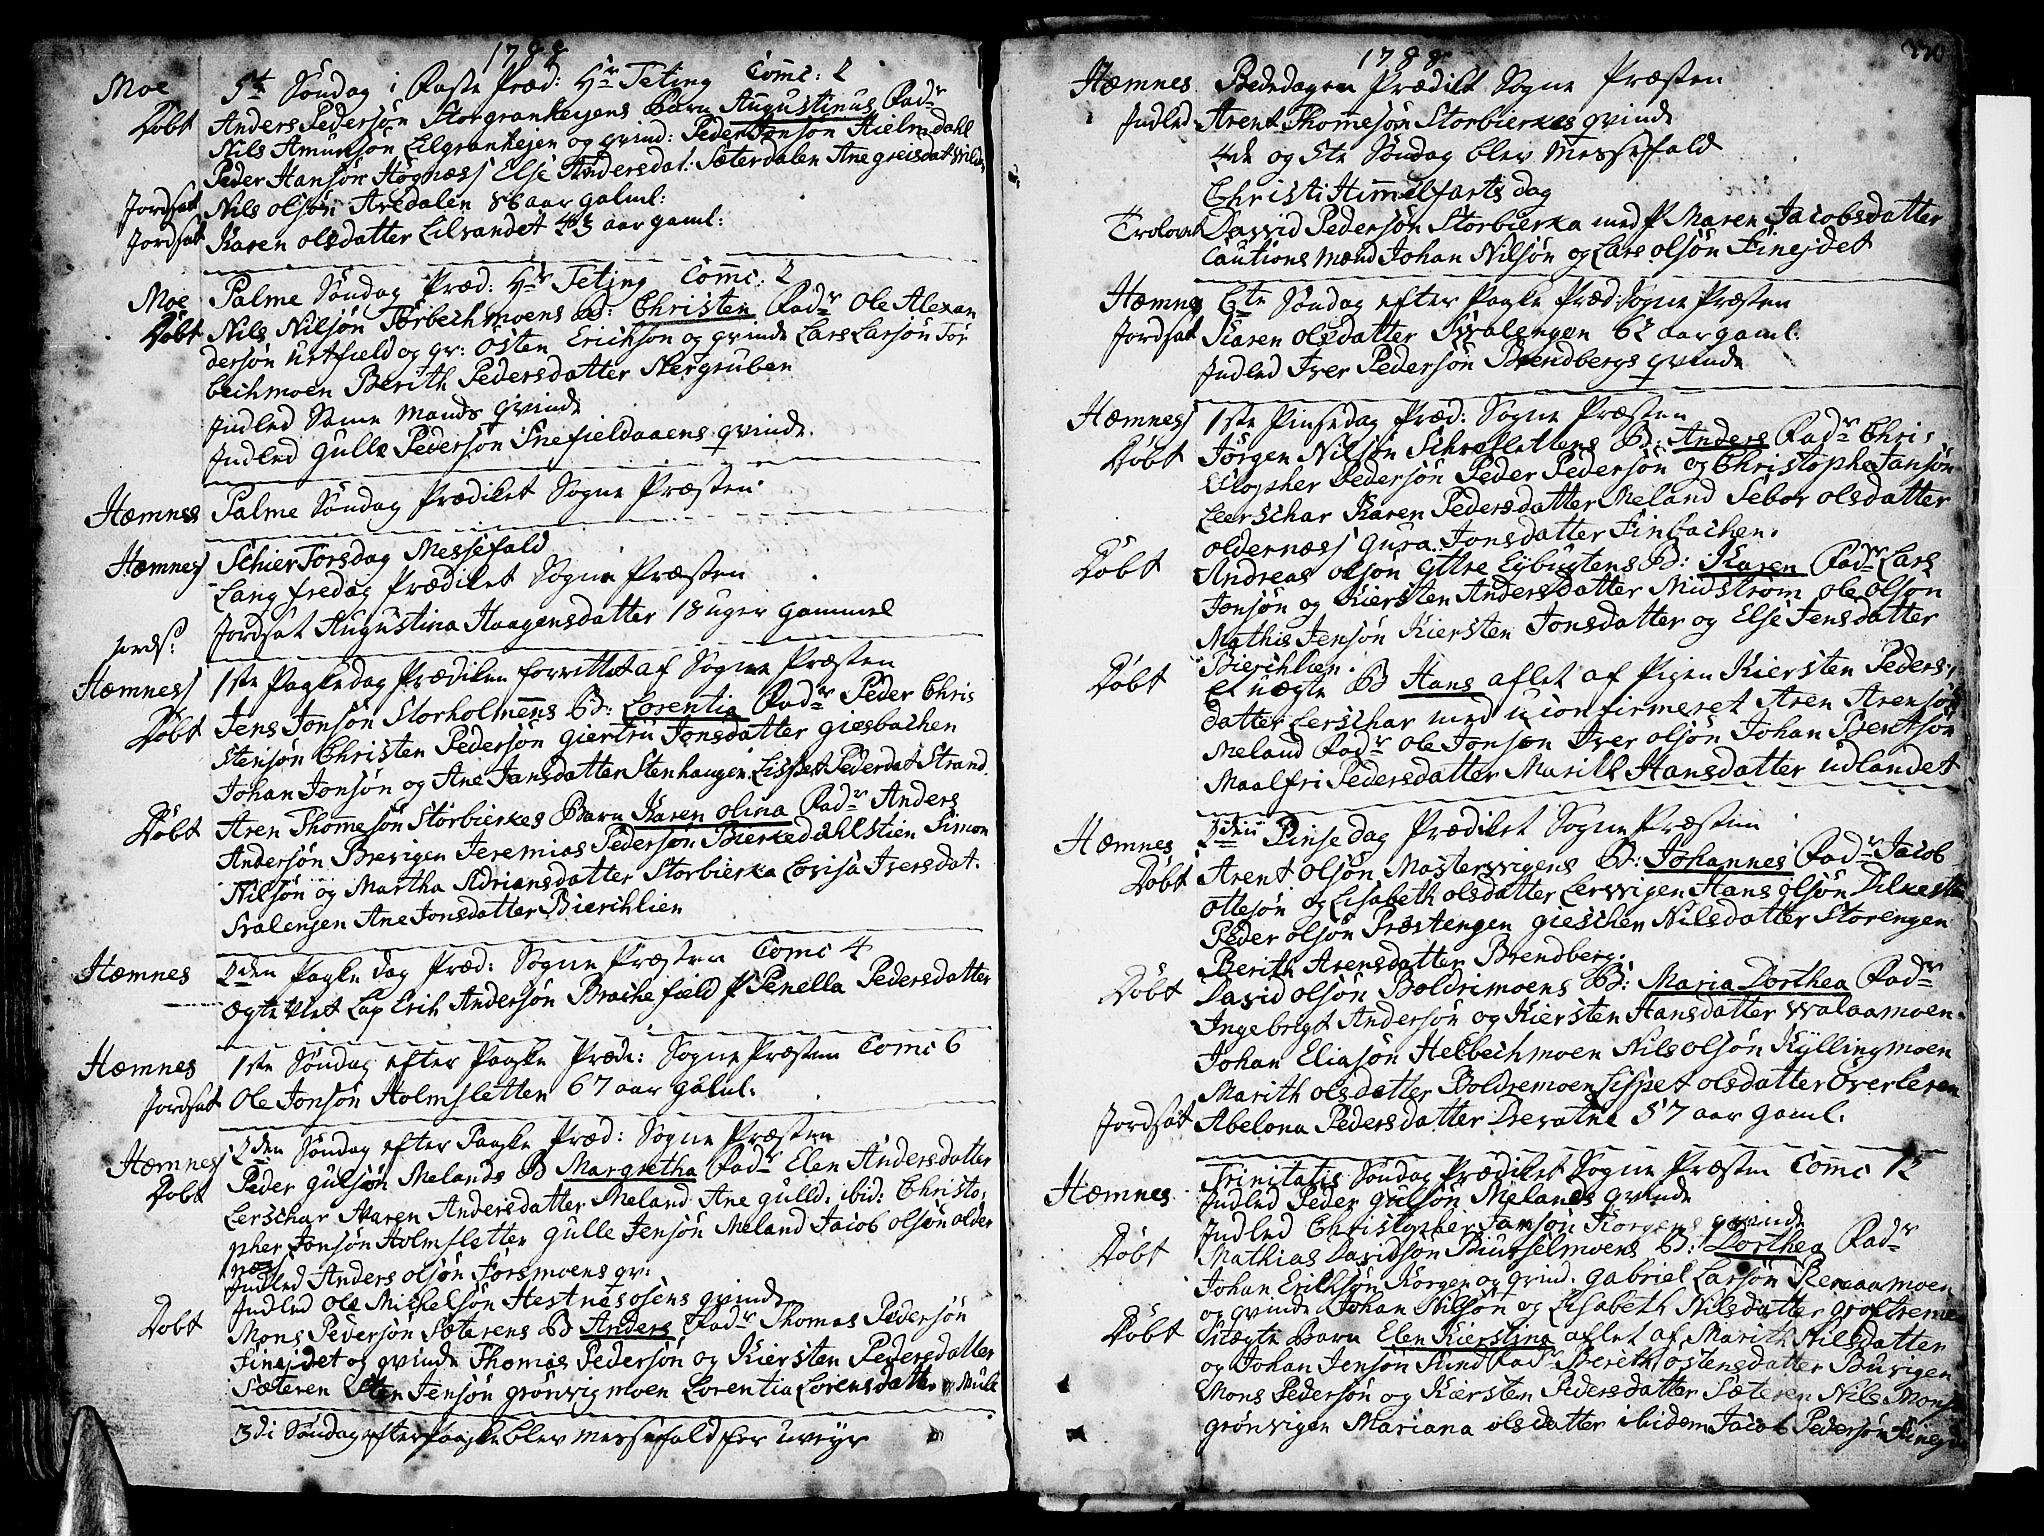 1788
Moe 5te Søndag i Faste Præd: Hr Teting Comc: 2
Døbt Anders Pedersøn Storgrankeiens Barn Augustinus Fadr
Nils Amunsøn Lilgrankejen og qvind: Peder Jonsøn Hielmedahl
Peder Hansøn Høgnæss Else Andersdat: Sæterdalen Ane greisdat
Jordsat Nils olsøn Aredalen 86 aar gaml:
Jordsat Karen olsdatter Lilvandet 43 aar gaml:
Moe Palme Søndag Præd: Hr Teting Comc: 2
Døbt Nils Nilsøn Tørbechmoens B: Christen Fadr Ole Alexan
dersøn Urtfield og qv: østen Erichson og qvinde Lars Larsøn Tør
bechmoen Berith Pedersdatter Nergruben
Indled Samme Mands qvinde
Indled Gulle Pedersøn Snefieldaaens qvinde
Hæmnes Palme Søndag Prædiket Sogne Præsten
Hæmnes Schier Torsdag Messefald
Lang fredag Prædiket Sogne Præsten
Jords: Jordsat Augustina Haagensdatter 18 uger gammel
Hæmness 1ste Paaskedag Prædiken forrettet af Sogne Præsten
Døbt Jens Jonsøn Storholmens B: Lorentia Fadr Peder Chris
stensøn Christen Pedersøn giertru Jonsdatter giesbachen
Johan Jonsøn og Ane Jansdatter Stenhaugen Lisbet Pederdat Strand
Døbt Aren Thomesøn Storbierkes Barn Karen olina Fadr Anders
Andersøn Brevigen Jeremias Pedersøn Bierkedahlstien Simon
Nilsøn og Martha Adriansdatter Storbierka Lovisa Iversdat.
Svalengen Ane Jonsdatter Bierichlien
Hæmnes 2den Paaske dag Præd: Sogne Præsten Comc 4
Ægte viet Lap Erih Andersøn Brachefield P Penella Pedersdatter
Hæmnes 1ste Søndag efter Paaske Præd: Sogne Præsten Comc 6
Jordsat Ole Jonsøn Holmsletten 67 aar gaml.
Hæmnes 2den Søndag efter Paaske Præd: Sogne Præsten
Døbt Peder gulsøn Melands B Margretha Fadr Elen Andersdatter
Lerschar Maren Andersdatter Meland Ane gulld: ibid: Christo,
pher Jonsøn Holmsletter gulle Jensøn Meland Jacob olsøn older
næss
Indled Anders olsøn Forsmoens qv:
Indled Ole Michelsøn Hestnesosens qvinde
Døbt Mons Pedersøn Sæterens B Anders Fadr Thomas Pedersøn
Finejdet og qvinde Thomas Pedersøn og Kiersten Pedersdatter
Sæteren Sten Jensøn grønvigmoen Lorentia Lorensdatter
3di Søndag efter Paaske blev messefald for uveyr
1788
Hæmnes Bededagen Prædiket Sogne Præsten
Indled Arent Thomesøn Storbierkes qvinde
4de og 5te Søndag blev Messefald
Christi Himmelfarts dag
Trolovet David Pedersøn Storbierka med P Maren Jacobsdatter
Cautions mænd Johan Nilsøn og Lars olsøn Finejdet
Hæmnes 6te Søndag efter Paaske Præd: Sogne Præsten
Jordsat Karen olsdatter Svalengen 62 aar gaml:
Indled Iver Pedersøn Brendbergs qvinde
Hæmness 1ste Pinsedag Præd: Sogne Præsten
Døbt Jørgen Nilsøn Schreslettens B: Anders Fadr Chri,
stopher Pedersøn Peder Pedersøn og Christopher Jansøn
Leerschar Karen Pedersdatter Meland Sebor olsdatter
oldernæss gura Jonsdatter Finbachen.
Døbt Andreas olsøn Ettre Lybugtens B: Karen Fadr Lars
Jonsøn og Kiersten Andersdatter Midstrøm ole olsøn
Mathis Jensøn Kiersten Jonsdatter og Else Jensdatter
Bierichlien.
Døbt Et uægte B Hans aflet af Pigen Kiersten Peders,
datter Lerschar med uconfirmeret Aren Arensøn
Meland Fadr Ole Jonsøn Iver olsøn Johan Bentsøn
Maalfri Pedersdatter Marith Hansdatter udlandet
Hæmnes 2den Pinse dag Prædiket Sogne Præsten
Døbt Arent olsøn Mastervigens B: Johannes Fadr Jacob
ottesøn og Lisabeth olsdatter Lervigen Hans olsøn
Peder olsøn Præstengen gieschen Nilsdatter Storengen
Berith Arensdatter Brendberg.
Døbt David olsøn Boldrimoens B: Maria Dorthea Fadr
Ingebrigt Andersøn og Kiersten Hansdatter Walaamoen.
Johan Eliasøn Helbechmoen Nils olsøn Kyllingmoen
Marith olsdatter Boldremoen Lispet olsdatter Øverleren
Jordsat Abelona Pedersdatter Drevatne 57 aar gaml.
Hæmnes Trinitatis Søndag Prædiket Sogne Præsten Comc 12
Indled Peder gulsøn Melands qvinde
Indled Christopher Jansøn Korgens qvinde
Døbt Mathias Davidsøn Biurselmoens B: Dorthea Fadr
Johan Erichsøn Korgen og qvind: gabriel Larsøn
og qvinde Johan Nilsøn og Lisabeth Nilsdatter
Døbt Uægte Barn Elen Kierstina aflet af Marith Nilsdatter
og Johan Jensøn Fadr Bereth østensdatter Buvigen
Mons Pedersøn og Kiersten Pedersdatter Sæteren Nils
grønvigen Mariana olsdatter ibidem Jacob Pedersøn